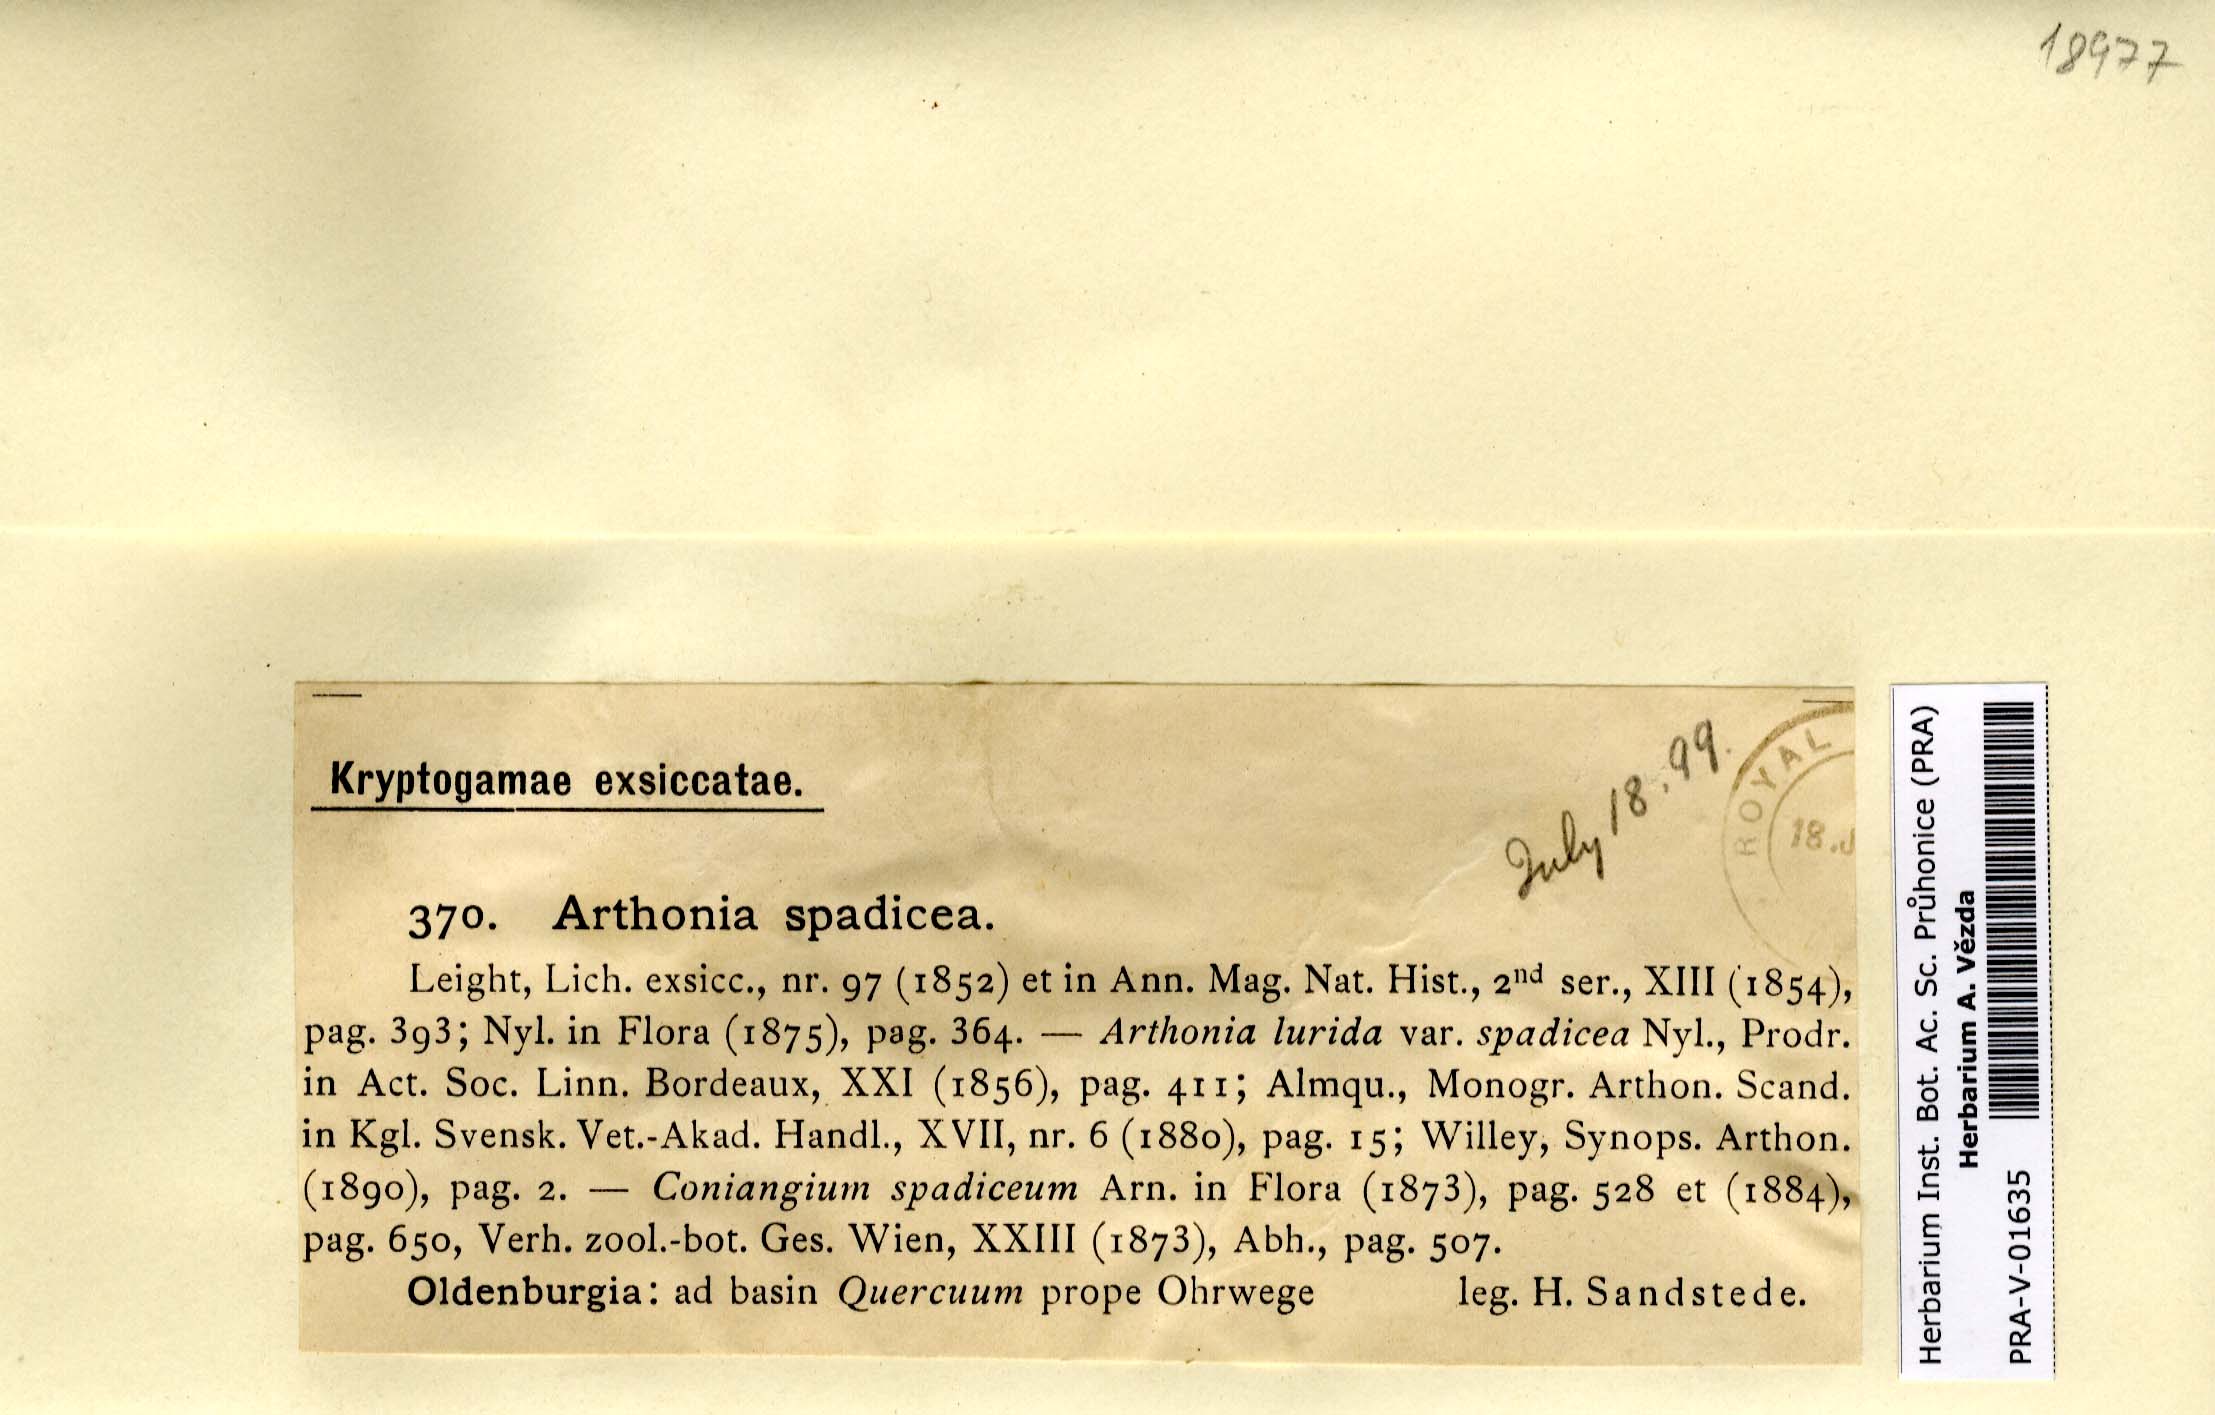 18977
Kryptogamae exsiccatae.
July 18. 99.
ROYAL
18.J
370. Arthonia spadicea.
Leight, Lich. exsicc., nr. 97 (1852) et in Ann. Mag. Nat. Hist., 2nd ser., XIII (1854),
pag. 393; Nyl. in Flora (1875), pag. 364. — Arthonia lurida var. spadicea Nyl., Prodr.
in Act. Soc. Linn. Bordeaux, XXI (1856), pag. 411; Almqu., Monogr. Arthon. Scand.
in Kgl. Svensk. Vet.-Akad. Handl., XVII, nr. 6 (1880), pag. 15; Willey, Synops. Arthon.
(1890), pag. 2. — Coniangium spadiceum Arn. in Flora (1873), pag. 528 et (1884),
pag. 650, Verh. zool.-bot. Ges. Wien, XXIII (1873), Abh., pag. 507.
Oldenburgia: ad basin Quercuum prope Ohrwege leg. H. Sandstede.
Herbarium Inst. Bot. Ac. Sc. Průhonice (PRA)
Herbarium A. Vězda
PRA-V-01635